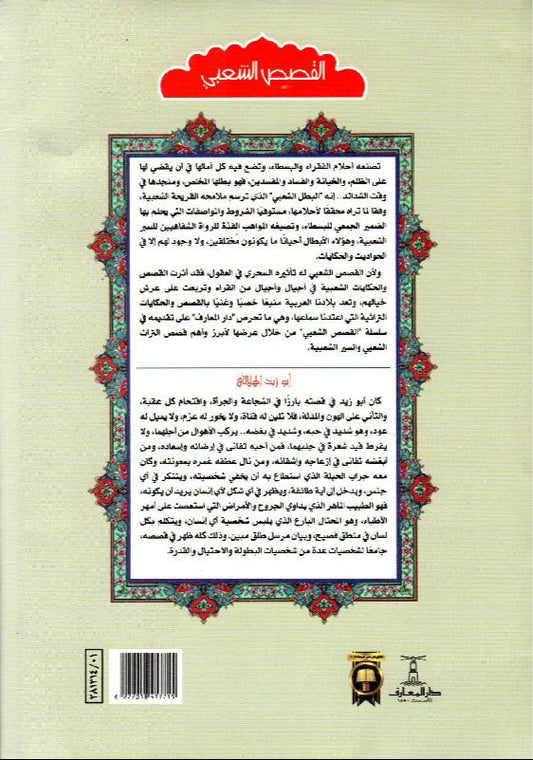 القصص الشعبي
تصنعه أحلام الفقراء والبسطاء، وتضع فيه كل آمالها في أن يقضي لها
على الظلم، والخيانة والفساد والمفسدين، فهو بطلها المخلص، ومنجدها في
وقت الشدائد.. إنه "البطل الشعبي" الذي ترسم ملامحه القريحة الشعبية،
وفقا لما تراه محققا لأحلامها، مستوفيا الشروط والمواصفات التي يحلم بها
الضمير الجمعي للبسطاء، وتصيغه المواهب الفذة للرواة الشفاهيين للسير
الشعبية، وهؤلاء الأبطال أحيانا ما يكونون مختلقين، ولا وجود لهم إلا في
الحواديت والحكايات.
ولأن القصص الشعبي له تأثيره السحري في العقول، فقد أثرت القصص
والحكايات الشعبية في أجيال وأجيال من القراء وتربعت على عرش
خيالهم، وتعد بلادنا العربية منبعا خصبا وغنيا بالقصص والحكايات
التراثية التي اعتدنا سماعها، وهي ما تحرص "دار المعارف" على تقديمه في
سلسلة "القصص الشعبي" من خلال عرضها لأبرز وأهم قصص التراث
الشعبي والسير الشعبية.
أبو زيد الهلالي
كان أبو زيد في قصته بارزا في الشجاعة والجرأة، واقتحام كل عقبة،
والتأني على الهون والمذلة، فلا تلين له قناة، ولا يخور له عزم، ولا يميل له
عود، وهو شديد في حبه، وشديد في بغضه.. يركب الأهوال من أجلهما، ولا
يفرط قيد شعرة في جنبهما، فمن أحبه تفانى في إرضائه وإسعاده، ومن
أبغضه تفانى في إزعاجه وإشقائه، ومن نال عطفه غمره بمعونته، وكان
معه جراب الحيلة الذي استطاع به أن يخفي شخصيته، ويتنكر في أي
جنس، ويدخل إلى أية طائفة، ويظهر في أي شكل لأي إنسان يريد أن يكونه،
فهو الطبيب الماهر الذي يداوي الجروح والأمراض التي استعصت على أمهر
الأطباء، وهو المحتال البارع الذي يلبس شخصية أي إنسان، ويتكلم بكل
لسان في منطق فصيح، وبيان مرسل طلق مبين. وذلك كله ظهر في قصصه،
جامعا لشخصيات عدة من شخصيات البطولة والاحتيال والقدرة.
٢٨١٣١٤/٠١
دار المعارف
تأسست ١٨٩٠